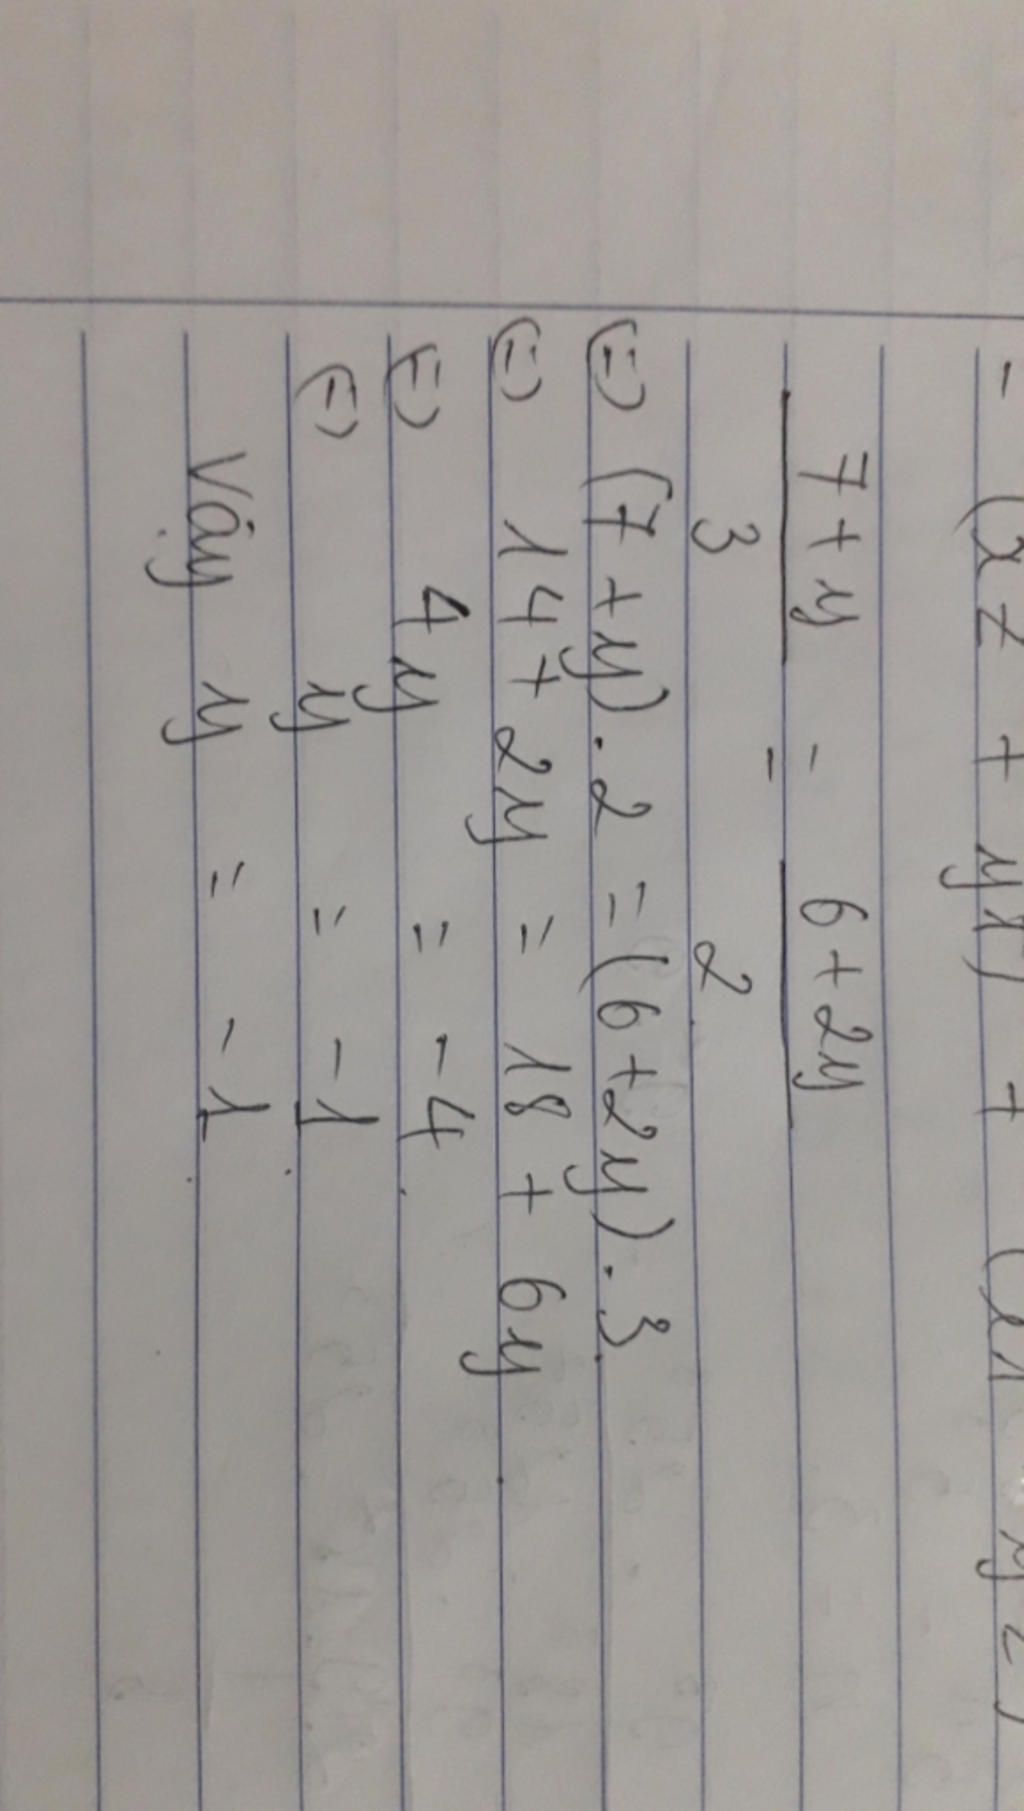 - (xz + yx) + (x
7 + y = 6 + 2y
3 2
(=) (7 + y) . 2 = (6 + 2y) . 3
(=) 14 + 2y = 18 + 6y
(=) 4y = -4
(=) y = -1
Vậy y = -1